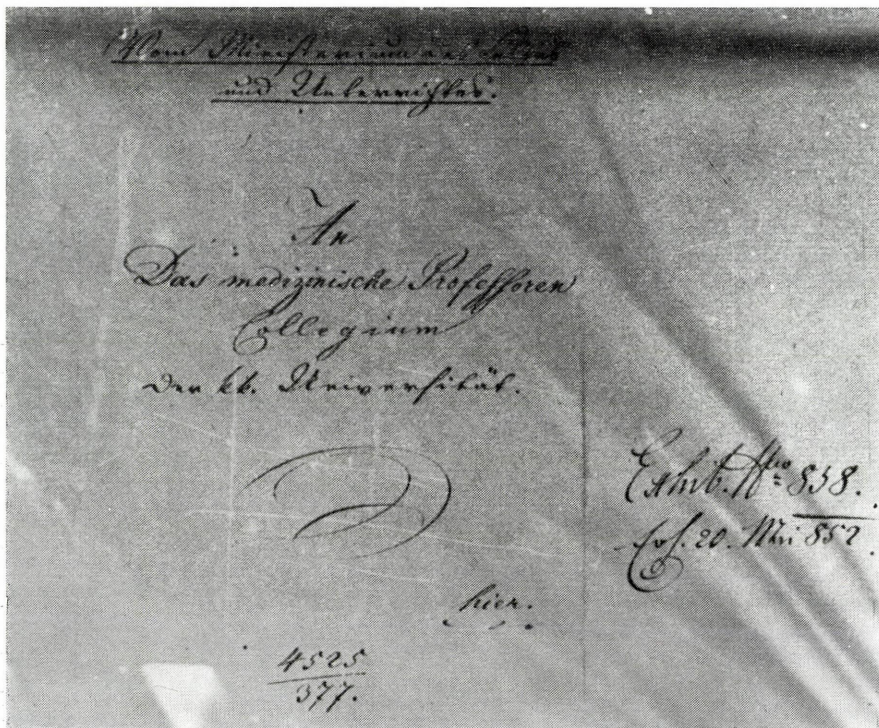 Vom Ministerium des Cultus
und Unterrichtes.
An
Das medizinische Professoren
Collegium
der kk. Universität.
hier.
4525
377.
Exhib. Nro 858.
20. Mai 852